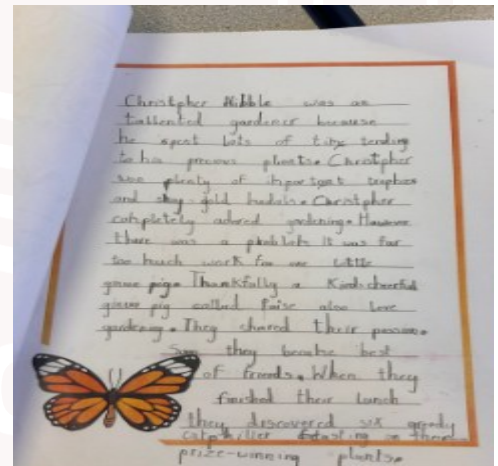 Christpher Nibble was an
tallented gardener because
he spent lots of time tending
to his precious plants. Christpher
won plenty of important trophies
and shiny gold medals. Christpher
completely adored gardening. However
there was a problem It was far
too much work for one little
ginue pig. Thankfully a Kind cheerful
ginue pig called Posie also love
gardening. They shared their passion.
Soon they became best
of friends. When they
finished their lunch
they discovered six greedy
catpihiller feasting on there
prize-winning plants.